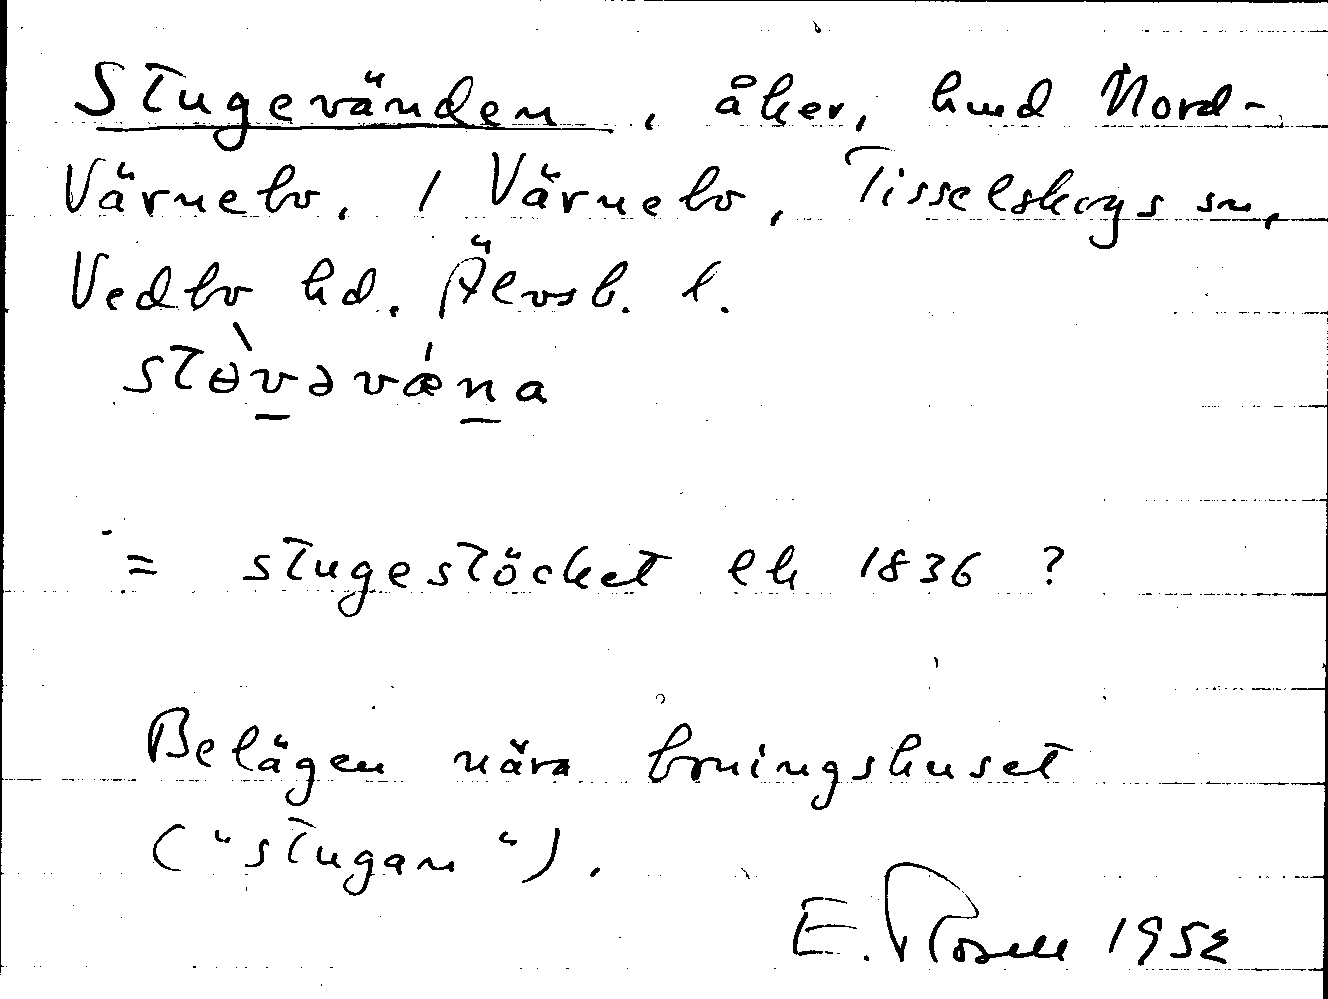 Stugevänden, åker, hmd Nord-
Värnebo, 1 Värnebo, Tisselskogs sn,
Vedbo hd. Älvsb. l.
stɵ̀vəvǽna
= stugestöcket ek 1836 ?
Belägen nära boningshuset
("stugan").
E. Rosell 1952